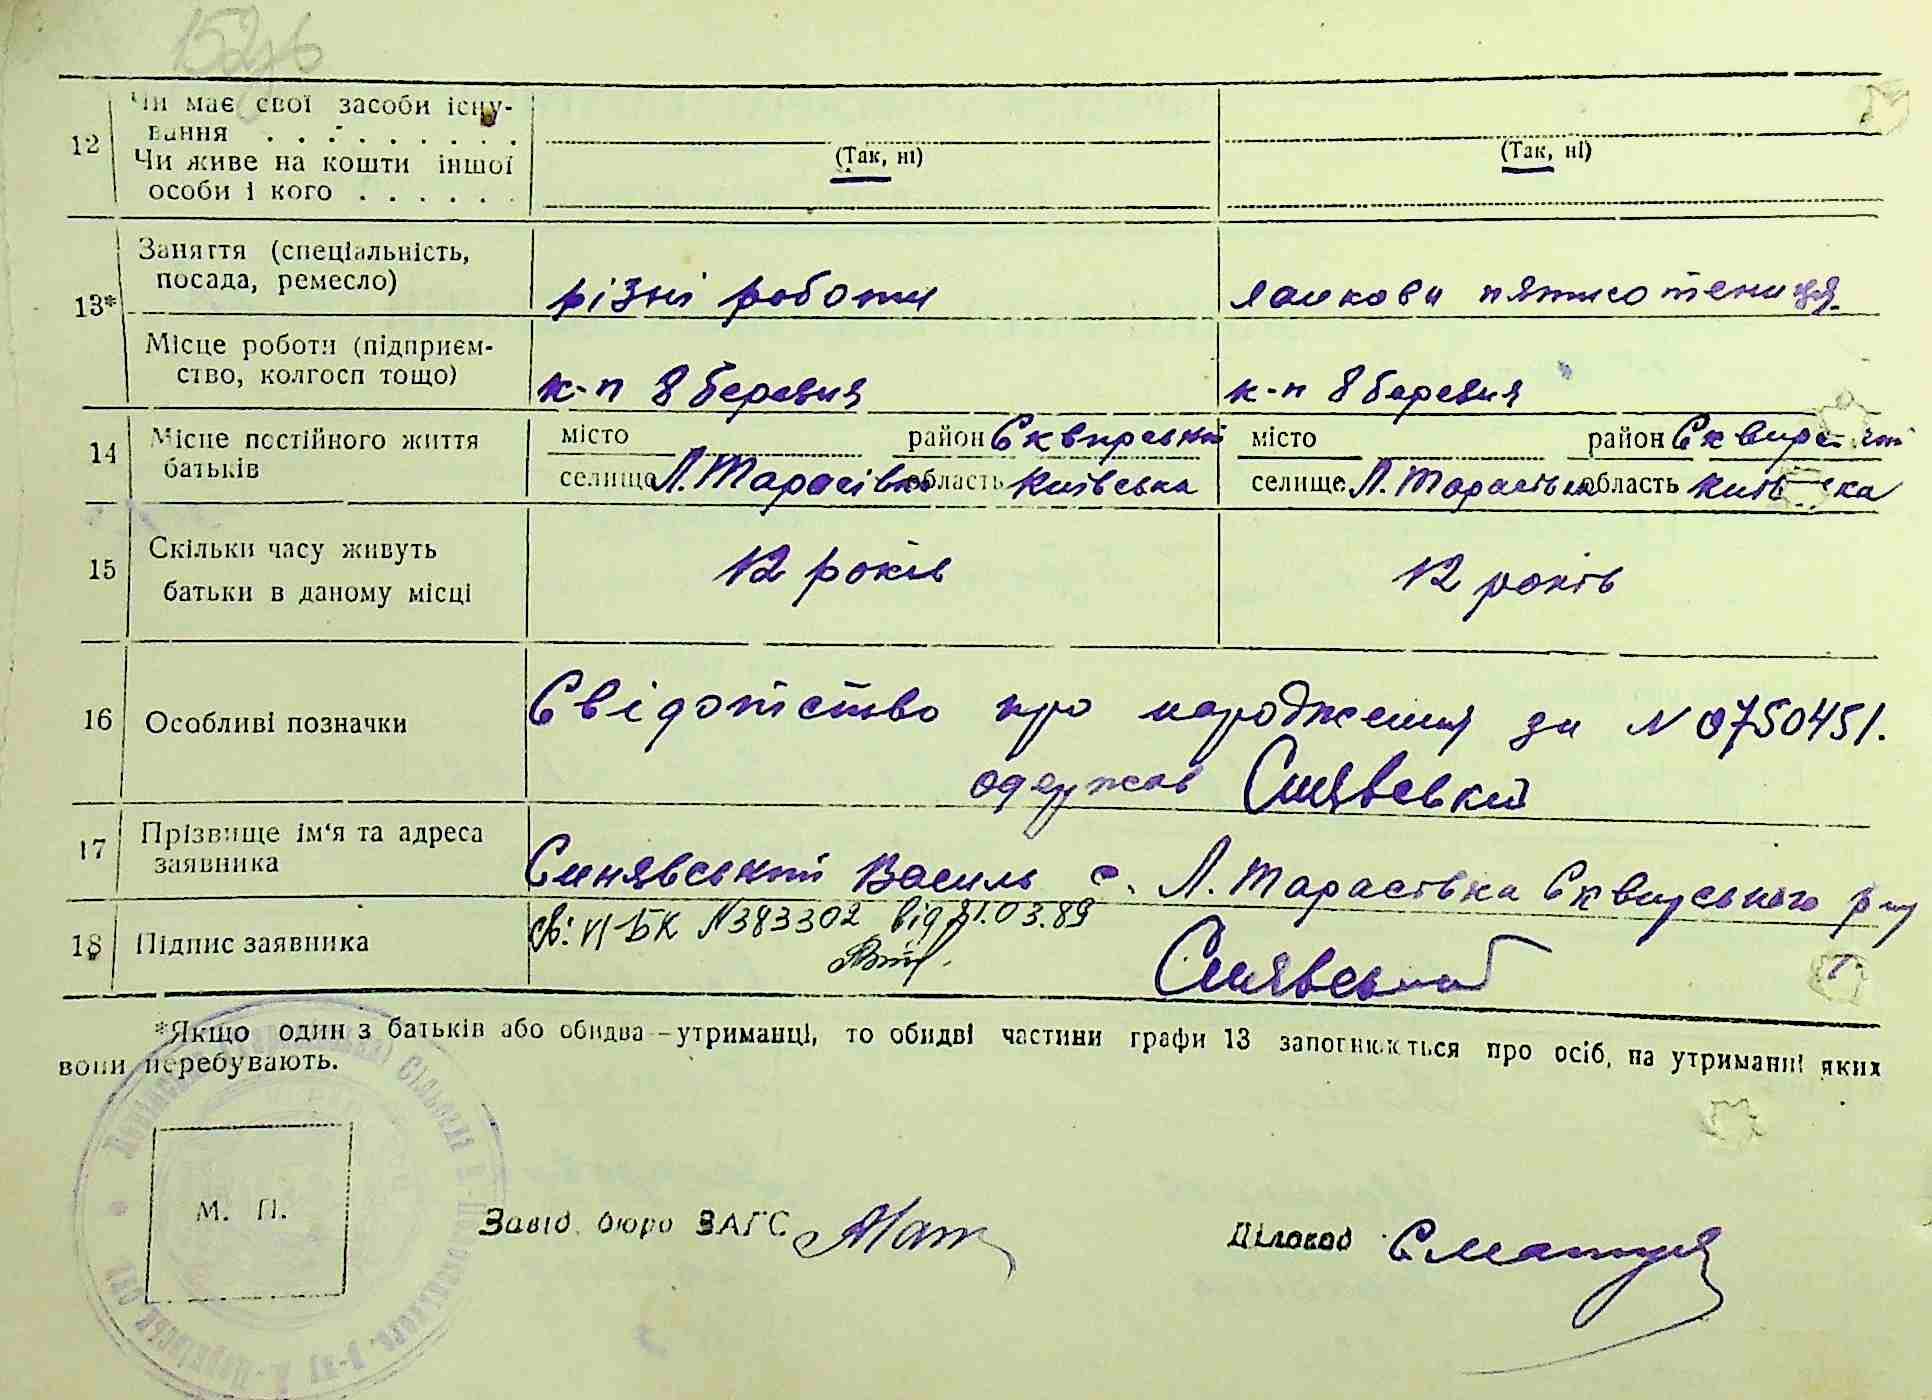 12 Чи має свої засоби існу-
вання . . . . . . . . .
(Так, ні) (Так, ні)
Чи живе на кошти іншої
особи і кого . . . . . .
13* Заняття (спеціальність,
посада, ремесло) різні роботи ланкова пятисотениця
Місце роботи (підприєм-
ство, колгосп тощо) к-п 8 березня к-п 8 березня
14 Місце постійного життя місто район Сквирський місто район Сквирський
батьків селище Л. Тарасівка область Київська селище Л. Тарасівка область Київська
15 Скільки часу живуть
батьки в даному місці 12 років 12 років
16 Особливі позначки Свідотство про народження за N 0750451.
одержав Синявський
17 Прізвище ім'я та адреса
заявника Синявський Василь с. Л. Тарасівка Сквирського р-ну
18 Підпис заявника св: ІІ БК N383302 від 21.03.89
Синявський
*Якщо один з батьків або обидва—утриманці, то обидві частини графи 13 заповнюється про осіб, на утриманні яких
вони перебувають.
М. П.
Завід. бюро ЗАГС Діловод